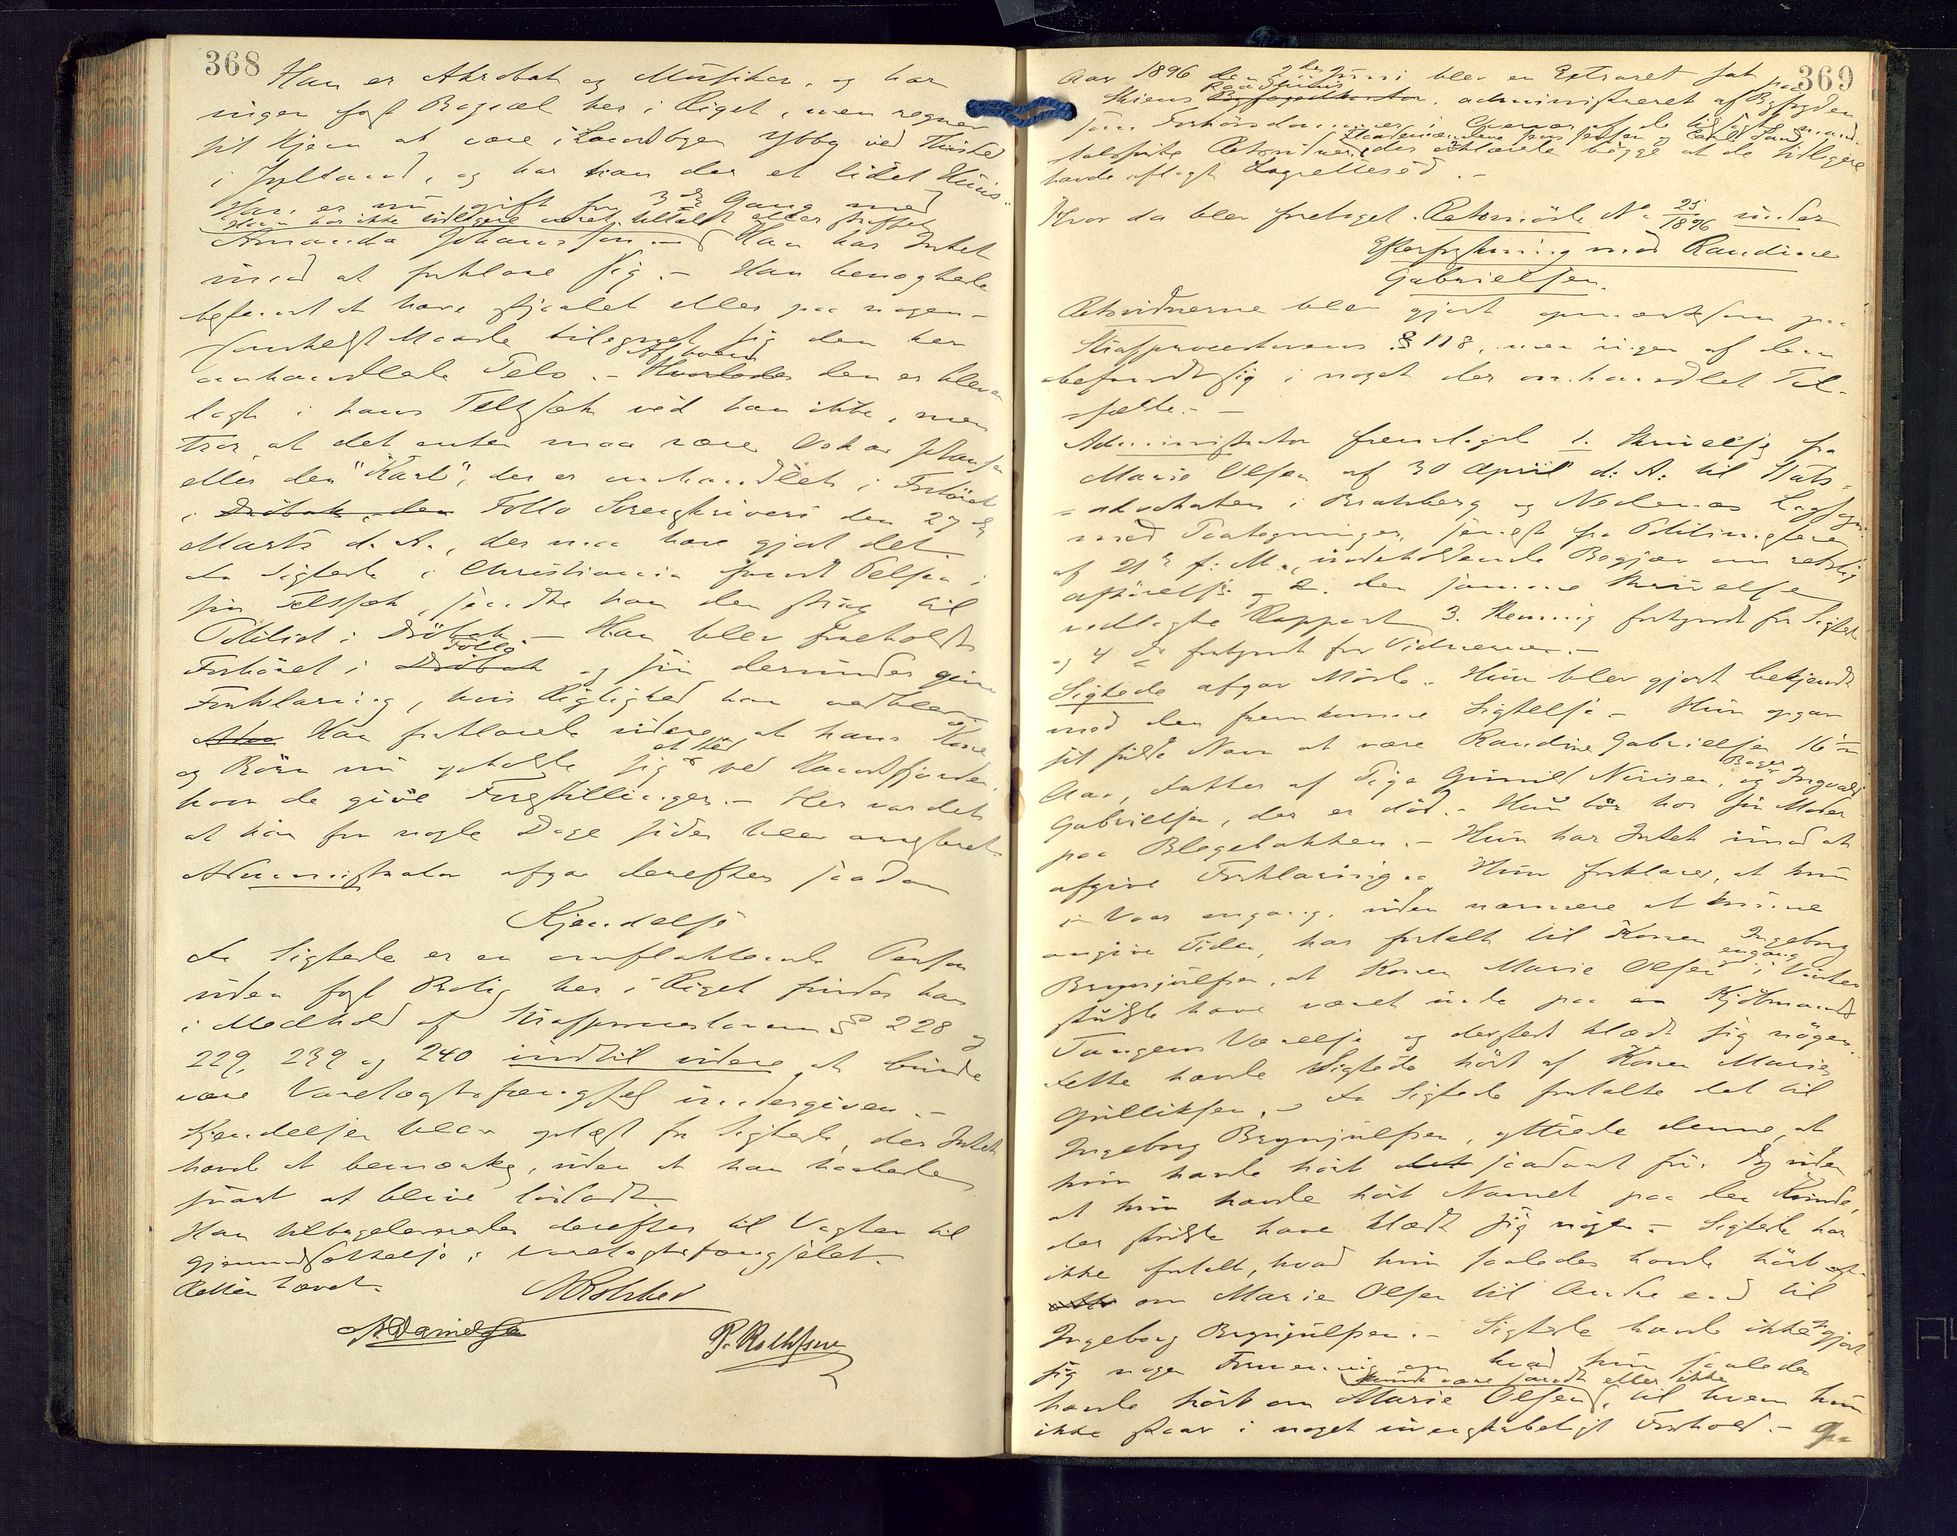 368
Han er Akrobat og Musiker, og har
ingen fast Bopæl her i Riget, men regner
sit Hjem at være i Landsbyen Ybby ved Thisted
i Jylland, og har han der et lidet Huus.
Han er nu gift for 3die Gang med
Han har ikke tidligere været tiltalt eller straffet
Amanda Johansson. – Han har Intet
imod at forklare sig. – Han benegtede
bestemt at have stjaalet eller paa nogen
somhelst Maade tilegnet sig den her
omhandlede Pels. – Hvorledes den er bleven
lagt i hans Teltsæk ved han ikke, men
tror, at det enten maa være Oskar
eller den "Karl", der er omhandlet i Forhöret
i Dröbak, den Follo Sorenskriveri den 27de
Marts d. A., der maa have gjort det.
Da Sigtede i Christiania fandt Pelsen i
sin Teltsæk, sendte han den strax til
Politiet i Dröbak. – Han blev foreholdt
Forhöret i Dröbak Follo og sin derunder givne
Forklaring, hvis Rigtighed han vedblev.
Han forklarede videre, at hans Kone
og Börn nu opholde sig et Sted ved
hvor de give Forestillinger. – Her var det
at han for nogle Dage siden blev anholdt.
Administrator afgav derefter saadan
Kjendelse
Da Sigtede er en omflakkende Person
uden fast Bolig her i Riget findes han
i Medhold af Straffproceslovens § 228 og
229, 239 og 240 indtil videre at burde
være Varetægtsfængsel undergiven. –
Kjendelsen blev oplæst for Sigtede, der Intet
havde at bemærke, uden at han haabede
snart at blive lösladt.
Han tilbageleveredes derefter til Vagten til
Gjenindsættelse i Varetægtsfængslet.
Retten hævet.
A Danielsen
P. Rolfssen
369
Aar 1896 den 2de Juni blev en Extraret sat paa
Skiens Raadhuus, administreret af Byfogden
som Forhörsdommer i Overvær af de tilsagte mand-
talsförte Retsvidner, der erklærede begge at de tidligere
havde aflagt Lagrettesed. –
Hvor da blev foretaget Retsmöde No 25/1896 under
Efterforskning mod Randine
Gabrielsen.
Retsvidnerne blev gjort opmærksom paa
Straffproceslovens § 118, men ingen af dem
befandt sig i noget der omhandlet Til-
fælde. –
Administrator fremlagde 1. Skrivelse fra
Marie Olsen af 30 April d. A. til Stats-
advokaten i Bratsberg og Nedenæs Lagsogn
med Paategninger, senest fra Politimesteren
af 21de f. M., indeholdende Begjær om retslig
afhörelse og 2. den samme Skrivelse
vedlagte Rapport 3. Stevning forkyndt for Sigtede
og 4 do forkyndt for Vidnerne. –
Sigtede afgav Möde. Hun blev gjort bekjendt
med den fremkomne Sigtelse – Hun opgav
sit fulde Navn at være Randine Gabrielsen 16
Aar, Datter af Pige Gunild Nirisen og Bager Ingvald
Gabrielsen, der er död. – Hun bor hos sin Moder
paa Blegebakken. – Hun har Intet imod at
afgive Forklaring. Hun forklarer, at hun
i Vaar engang, uden nærmere at kunne
angive Tiden, har fortalt til Konen Ingeborg
Brynjulfsen, at Konen Marie Olsen engang i Vinter
skulde have været inde paa en Kjöbmand
Tangens Værelse og dersteds klædt sig nögen.
Dette havde Sigtede hört af Konen Marie
Gulliksen. – Da Sigtede fortalte det til
Ingeborg Brynjulfsen, yttrede denne, at
hun havde hört det saadant för. uden
at hun havde hört Navnet paa den Kvinde,
der skulde have klædt sig nögen – Sigtede har
ikke fortalt, hvad hun saaledes havde hört
om Marie Olsen til Andre end til
Ingeborg Brynjulfsen. – Sigtede havde ikke gjort
sig nogen Formening om hvad hun saaledes
kunde være sandt eller ikke
havde hört om Marie Olsen, til hvem hun
ikke staar i noget uvenskabeligt Forhold. –